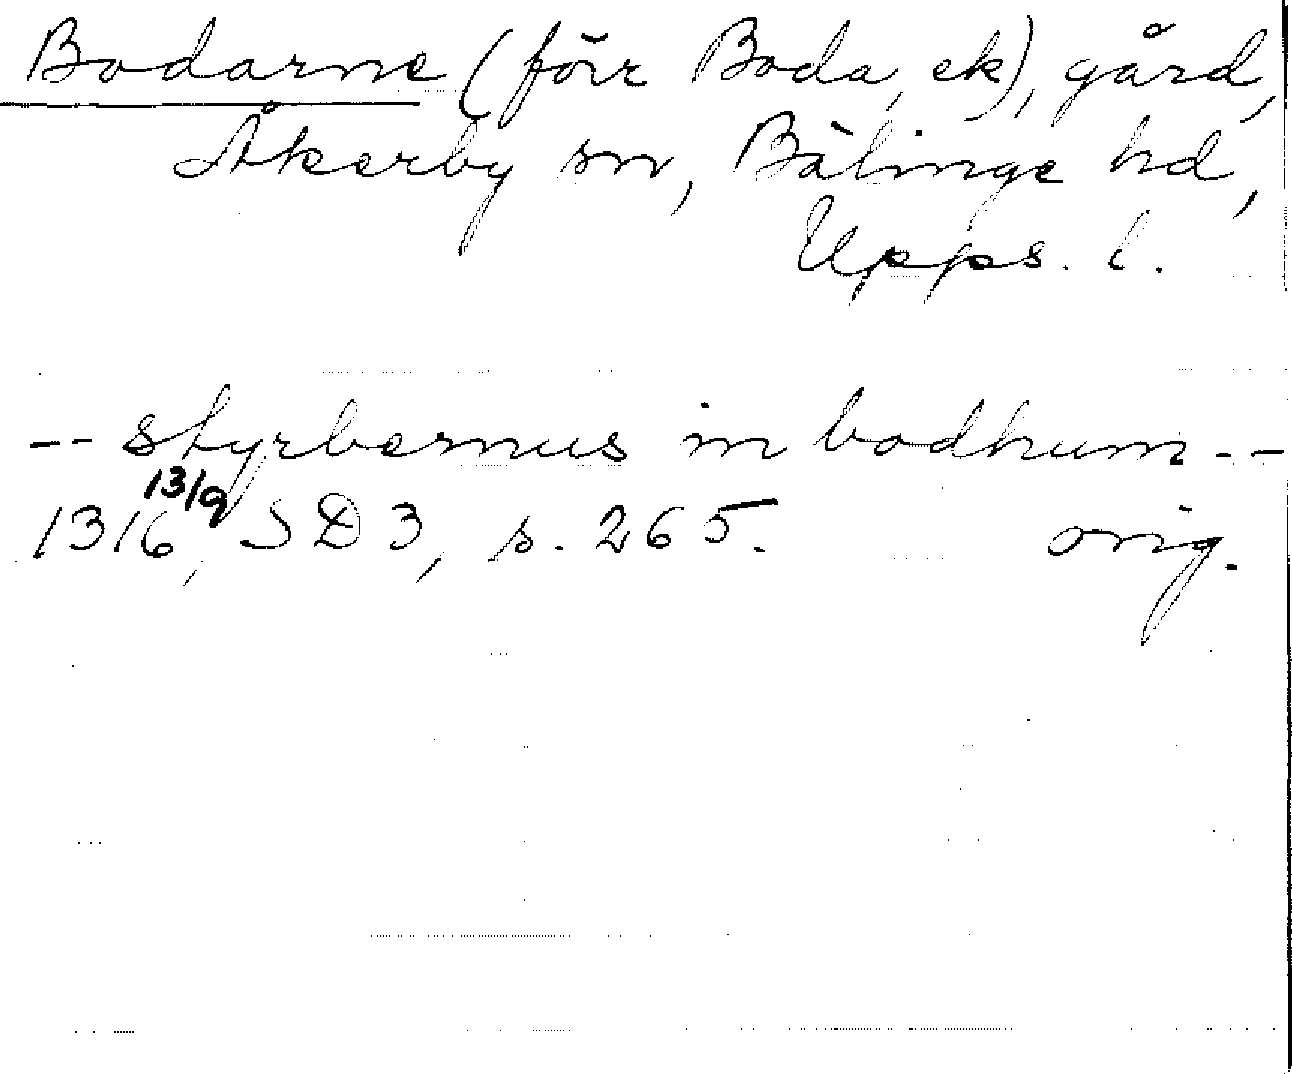 Bodarne (förr Boda, ek), gård,
Åkerby sn, Bälinge hd,
Upps. l.
-- styrbernus in bodhum --
13/9
1316, SD 3, s. 265. orig.